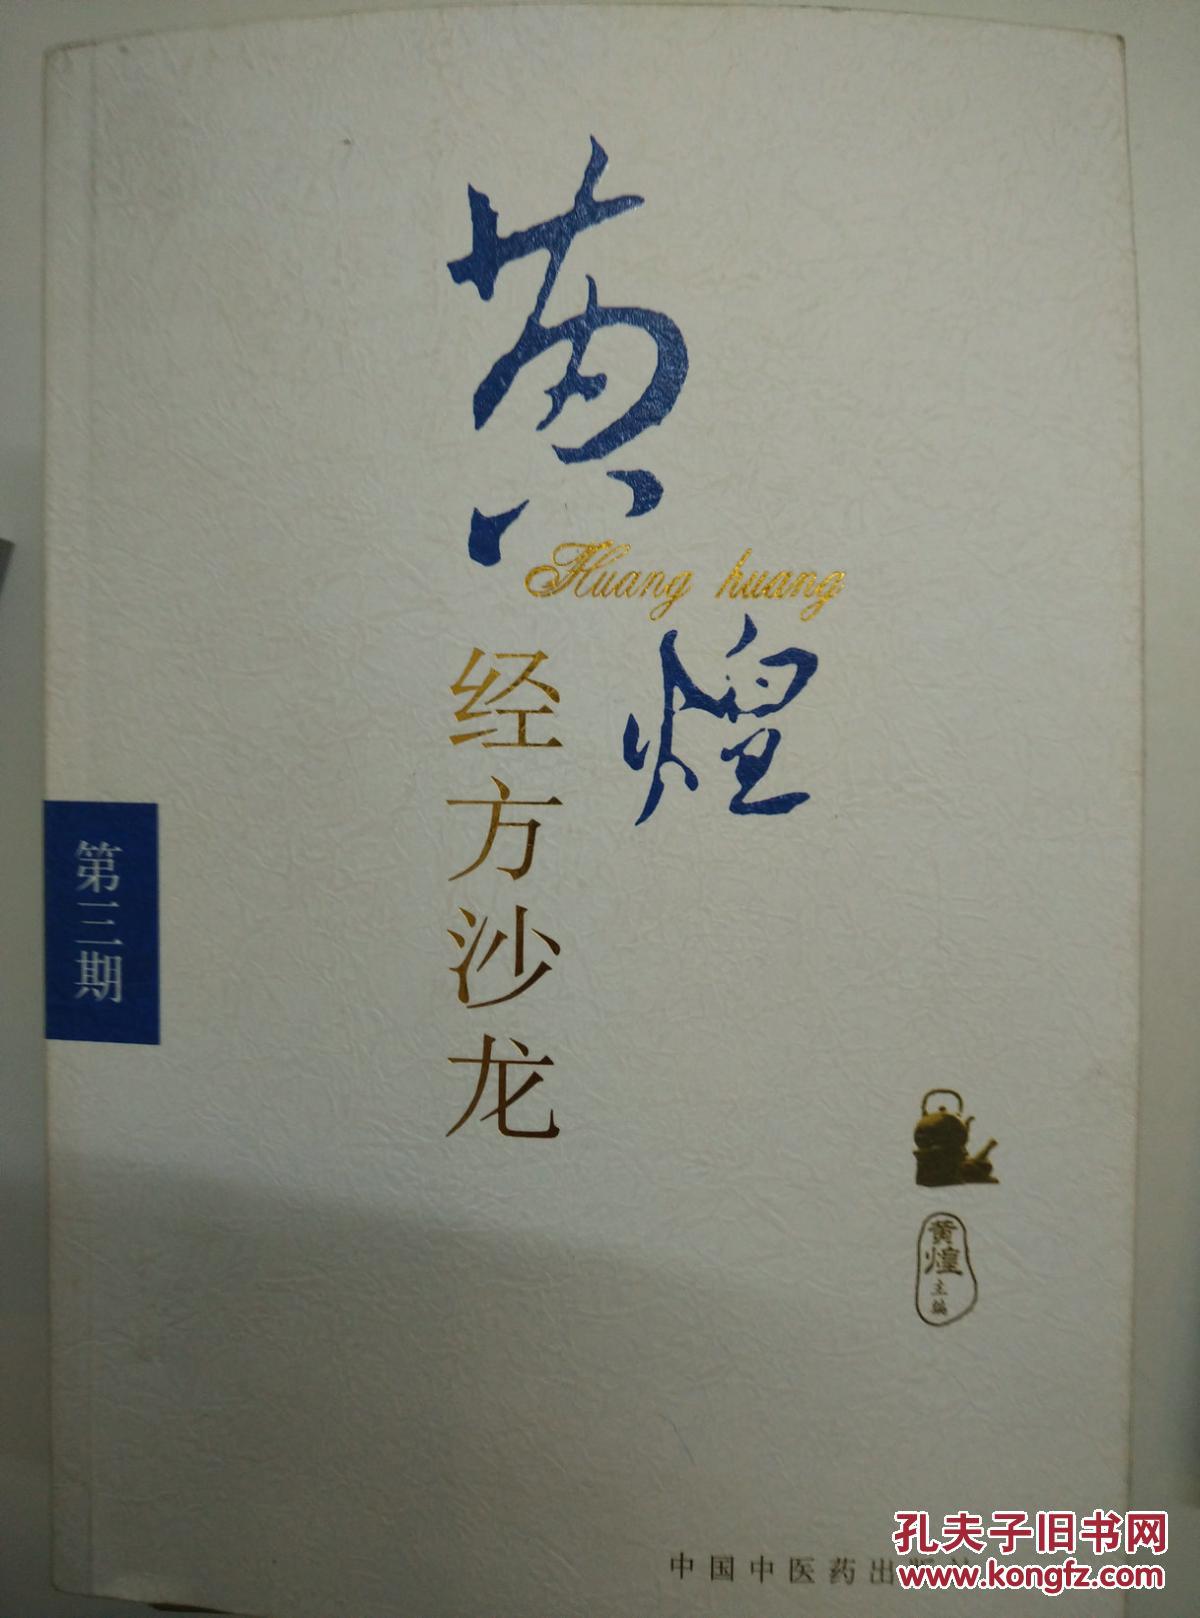 黄煌
Huang huang
经方沙龙
第三期
黄煌
主编
中国中医药出版社
孔夫子旧书网
www.kongfz.com